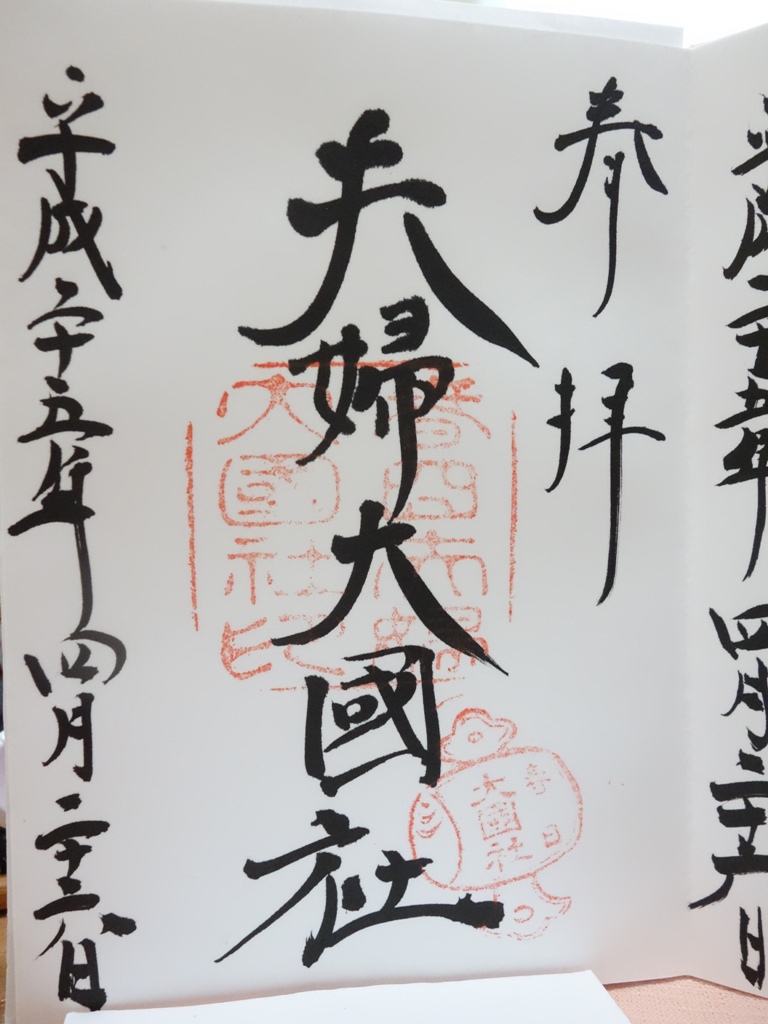 平成二十五年四月二十六日
奉拝
夫婦大國社
春日夫婦
大國社印
春日
大國社
平成二十五年四月二十六日